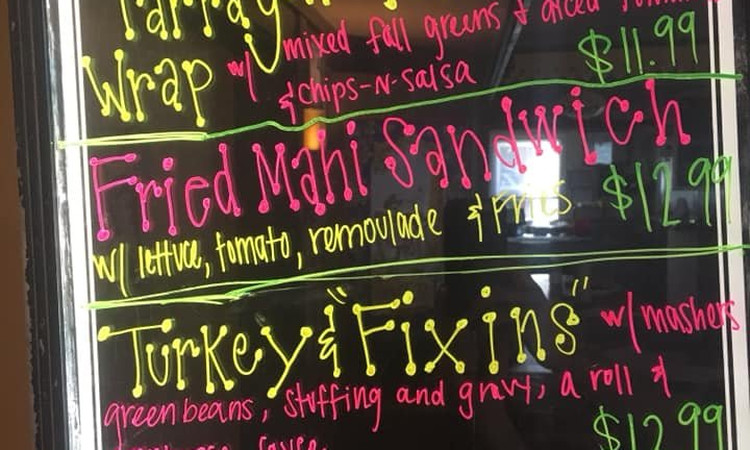 Wrap w/ mixed fall greens & diced
& chips-N-salsa $11.99
Fried Mahi Sandwich
w/ lettuce, tomato, remoulade & Fries $12.99
Turkey & "Fixins" w/ mashers
green beans, stuffing and gravy, a roll &
sauce. $12.99